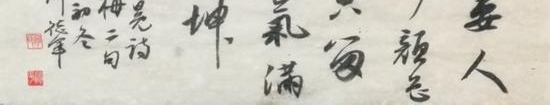 要人
顏色
只留
氣滿
坤
冕詩
梅二句
初冬